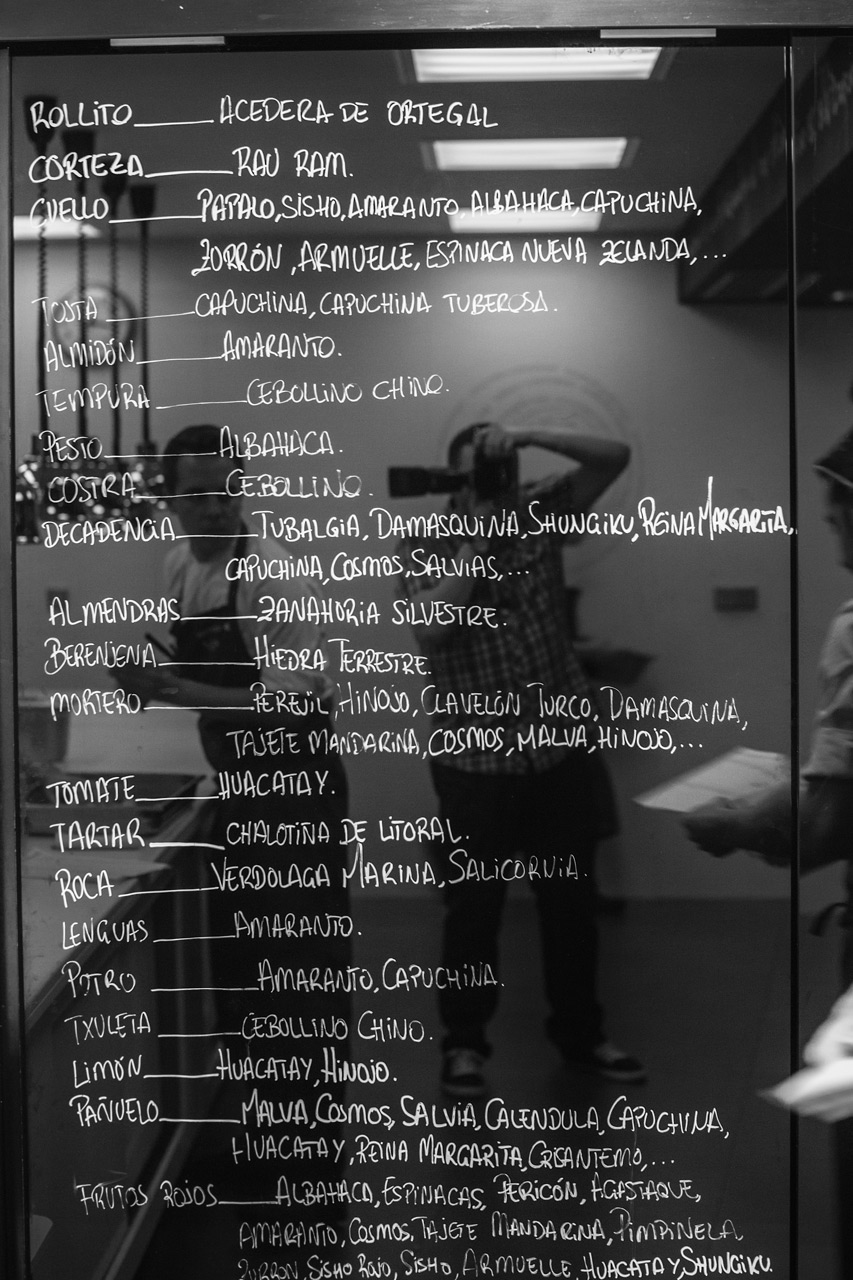 ROLLITO ACEDERA DE ORTEGAL
CORTEZA RAU RAM.
CUELLO PAPALO, SISHO, AMARANTO, ALBAHACA, CAPUCHINA,
ZURRÓN, ARMUELLE, ESPINACA NUEVA ZELANDA,...
TOSTA CAPUCHINA, CAPUCHINA TUBEROSA.
ALMIDÓN AMARANTO.
TEMPURA CEBOLLINO CHINO.
PESTO ALBAHACA.
COSTRA CEBOLLINO.
DECADENCIA TUBALGIA, DAMASQUINA, SHUNGIKU, REINA MARGARITA,
CAPUCHINA, COSMOS, SALVIAS,...
ALMENDRAS ZANAHORIA SILVESTRE.
BERENJENA HIEDRA TERRESTRE.
MORTERO PEREJIL, HINOJO, CLAVELÓN TURCO, DAMASQUINA,
TAJETE MANDARINA, COSMOS, MALVA, HINOJO,...
TOMATE HUACATAY.
TARTAR CHALOTIÑA DE LITORAL.
ROCA VERDOLAGA MARINA, SALICORNIA.
LENGUAS AMARANTO.
POTRO AMARANTO, CAPUCHINA.
TXULETA CEBOLLINO CHINO.
LIMÓN HUACATAY, HINOJO.
PAÑUELO MALVA, COSMOS, SALVIA, CALENDULA, CAPUCHINA,
HUACATAY, REINA MARGARITA, CRISANTEMO,...
FRUTOS ROJOS ALBAHACA, ESPINACAS, PERICÓN, AGASTAQUE,
AMARANTO, COSMOS, TAJETE MANDARINA, PIMPINELA
ZURRON, SISHO ROJO, SISHO, ARMUELLE, HUACATAY, SHUNGIKU.